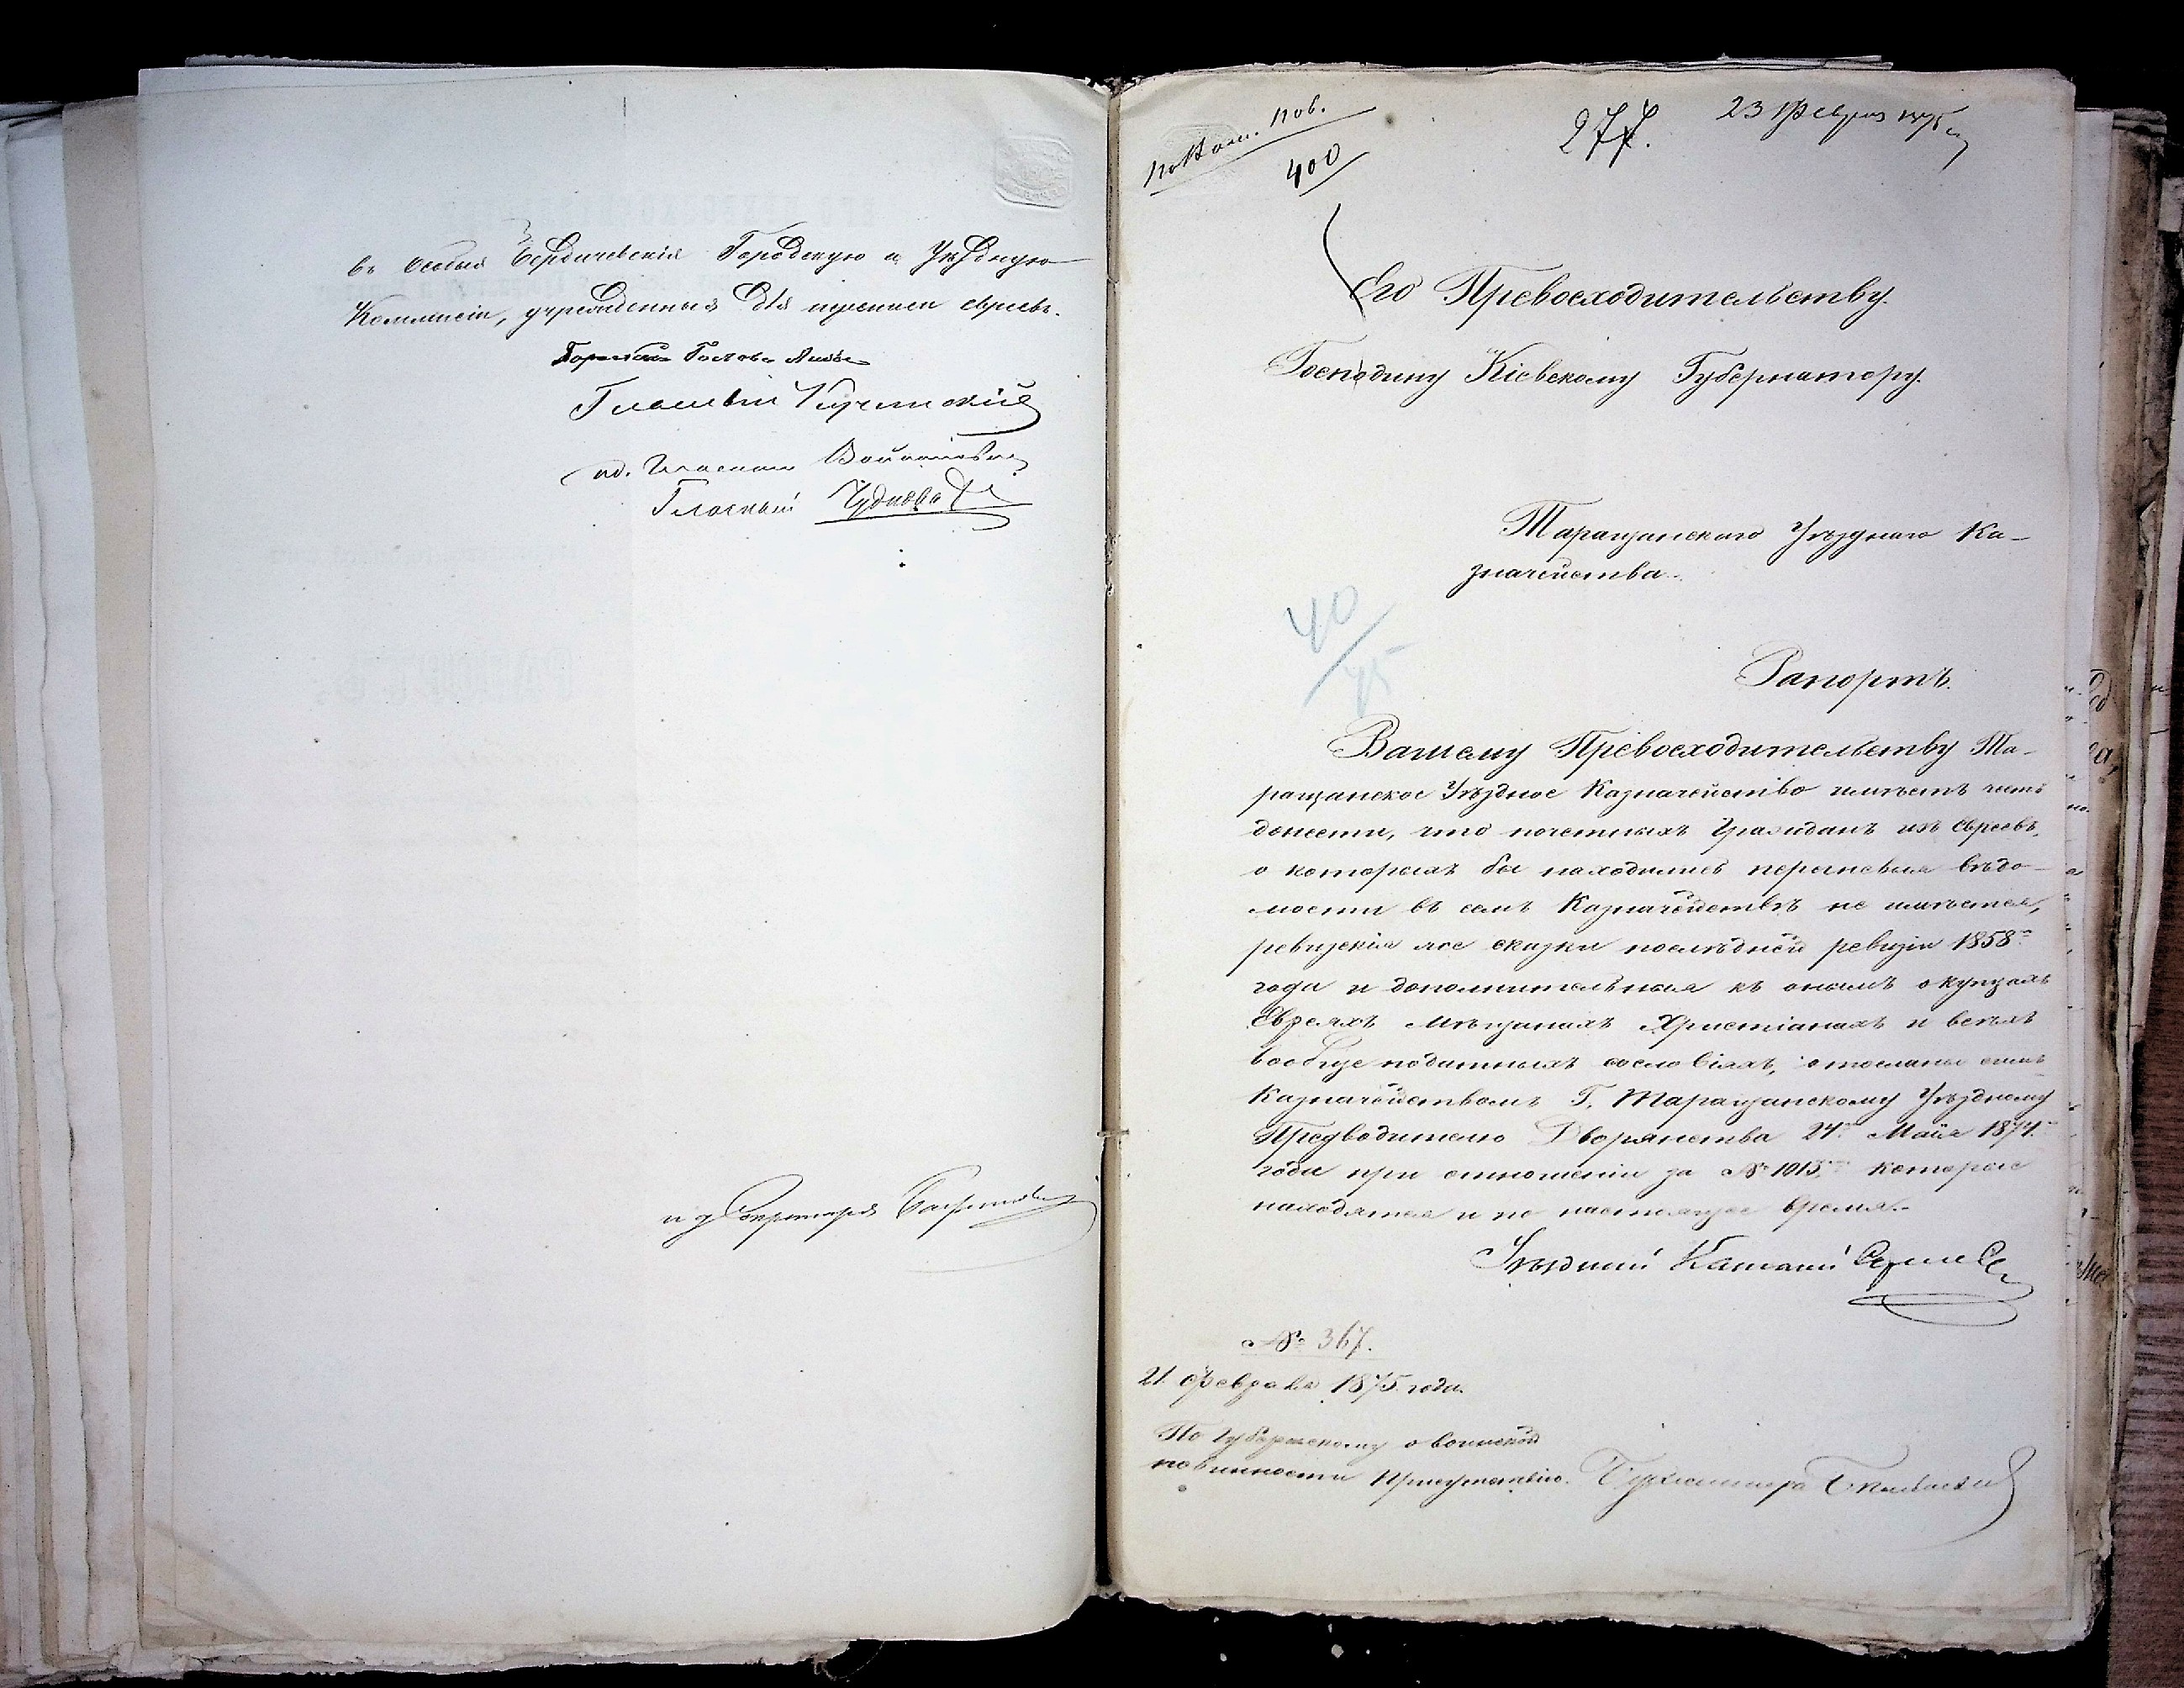 въ Особыя Бердичевскія Городскую и Уѣздную
Коммисіи, учрежденныя для переписи евреевъ.
Городской Голова
Гласный
Гласный
и д Секретаря
По Воин. пов.
400
277.
23 Февраля 1875 г
Его Превосходительству
Господину Кіевскому Губернатору.
Таращанскаго Уѣзднаго Ка-
значейства.
40/75
Рапортъ.
Вашему Превосходительству Та-
ращанское Уѣздное Казначейство имѣетъ честь
донести, что почетныхъ Гражданъ изъ Евреевъ,
о которыхъ бы находились перечневыя вѣдо-
мости въ семъ Казначействѣ не имѣется,
ревизскія же сказки послѣдней ревизіи 1858го
года и дополнительныя къ онымъ о купцахъ
Евреяхъ мѣщанахъ Христіанахъ и всѣхъ
вообще податныхъ сословіяхъ, отосланы симъ
Казначействомъ Г. Таращанскому Уѣздному
Предводителю Дворянства 24го Мая 1874го
года при отношеніи за № 1015, которые
находятся и по настоящее время.
Уѣздный Казначей
№ 367.
21 Февраля 1875 года.
По Губернскому о воинской
повинности Присутствію.
Бухгалтера